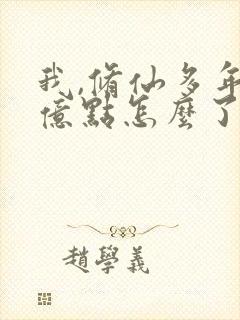 我,脩仙多年
億點怎麼了
趙學義